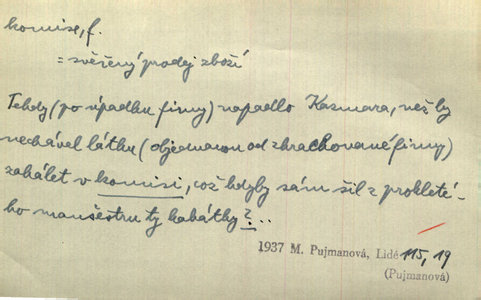 komise, f.
= svěřený prodej zboží
Tehdy (po úpadku firmy) napadlo Kazmara, než by
nechával látku (objednanou od zkrachované firmy)
zahálet v komisi, což kdyby sám šil z prokleté-
ho manšestru ty kabátky? ..
1937 M. Pujmanová, Lidé 115, 19
(Pujmanová)